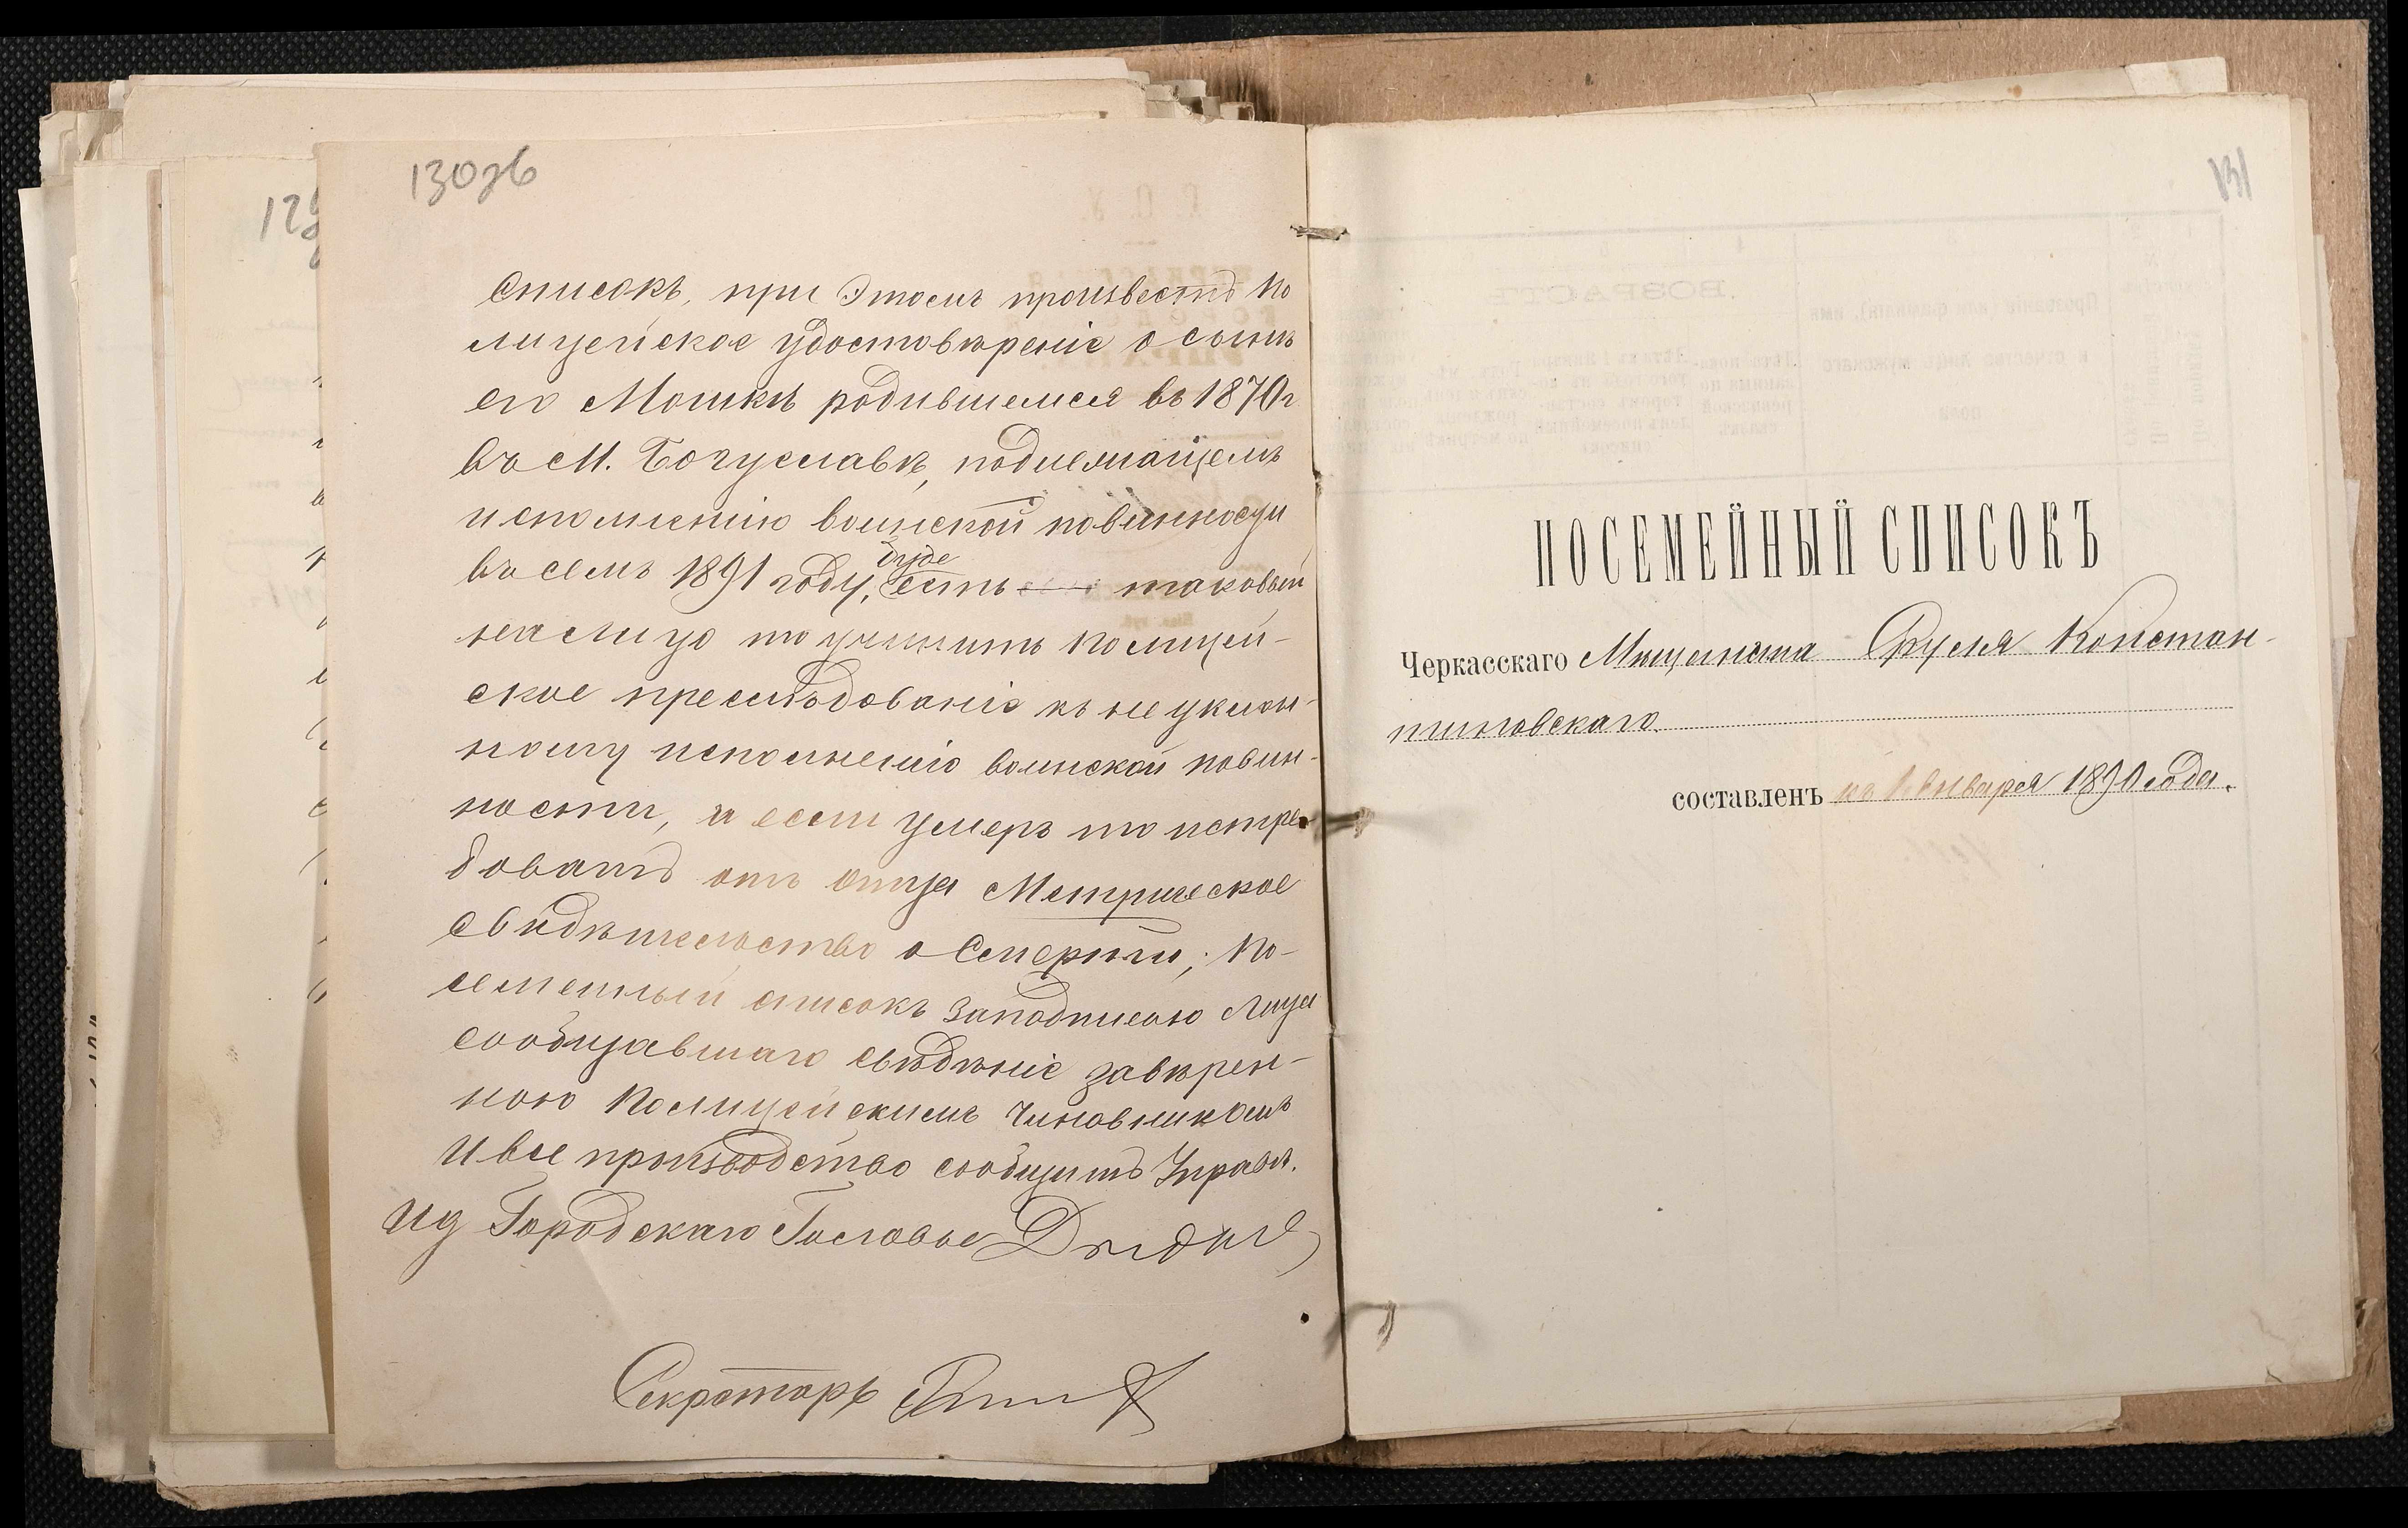 130об
Списокъ, при этомъ произвесть по
лицейское удостовѣреніе о сынѣ
его Мошкѣ родившемся въ 1870 г
въ М. Богуславѣ, подлежащемъ
исполненію воинской повинности
въ семъ 1891 году, есть таковый
на лицо то учинить полицей-
ское преслѣдованіе къ не уклон-
ному исполненію воинской повин-
ности, и если умеръ то истре-
бовать отъ отца Метрическое
свидѣтельство о смерти; По-
семейный списокъ заподписью лица
сообщавшаго свѣдѣніе завѣрен-
ною Полицейскимъ Чиновникомъ
и все производство сообщить Управѣ.
ИД Городскаго Головы
Секретарь
131
ПОСЕМЕЙНЫЙ СПИСОКЪ
Черкасскаго Мѣщанина Сруля Констан-
тиновскаго.
составленъ къ 1 Января 1890 года.